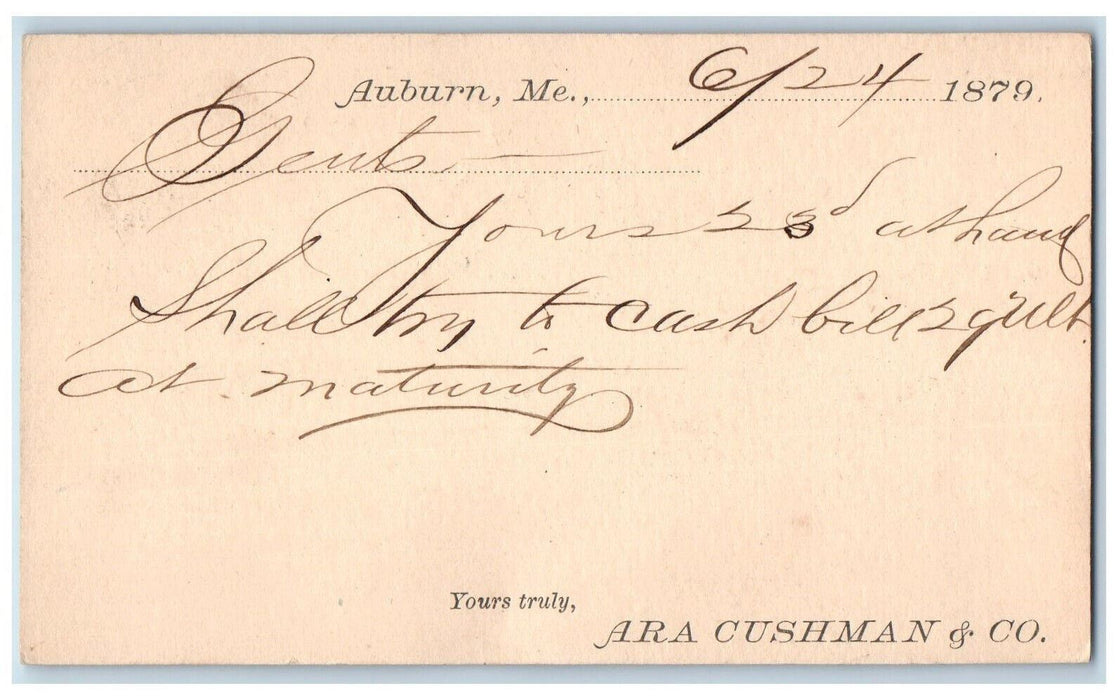 Auburn, Me., 6/24 1879.
Gents
Yours 23d at hand
Shall try to cash bill 29 ult.
at maturity
Yours truly,
ARA CUSHMAN & CO.